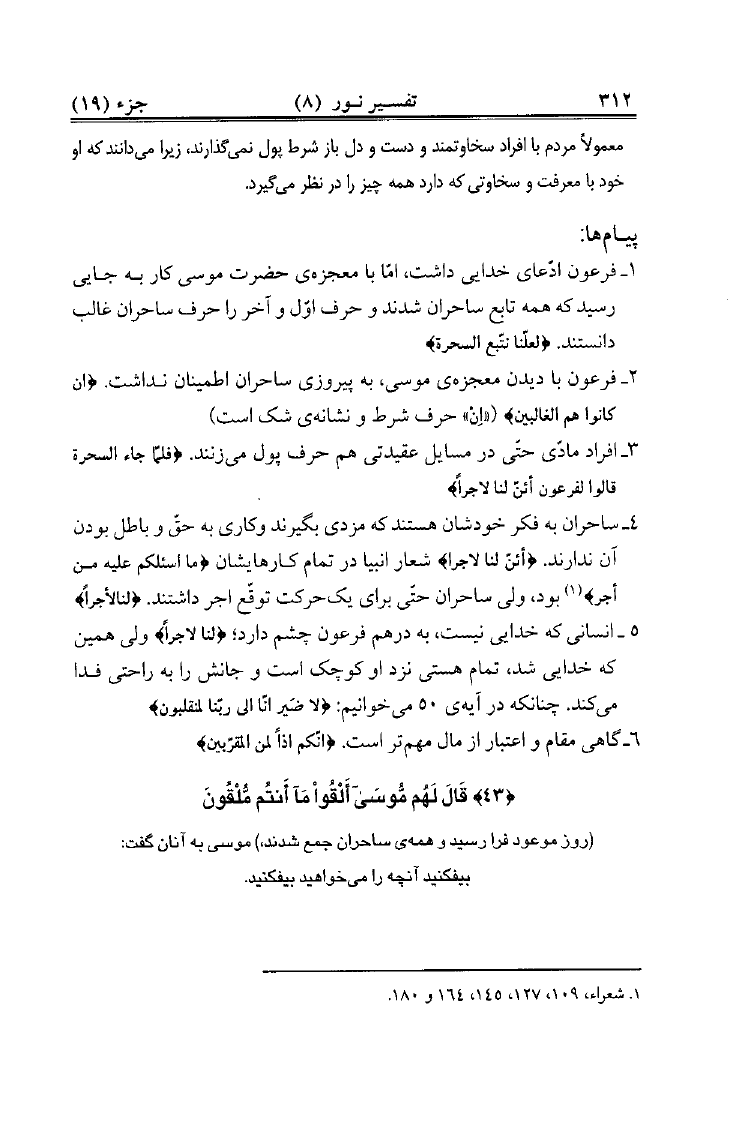 ٣١٢ تفسير نور (٨) جزء (١٩)
معمولاً مردم با افراد سخاوتمند و دست و دل باز شرط پول نمی‌گذارند، زیرا می‌دانند که او
خود با معرفت و سخاوتی که دارد همه چیز را در نظر می‌گیرد.
پیام‌ها:
١ـ فرعون ادّعای خدایی داشت، امّا با معجزه‌ی حضرت موسی کار به جایی
رسید که همه تابع ساحران شدند و حرف اوّل و آخر را حرف ساحران غالب
دانستند. ﴿لعلّنا نتّبع السحرة﴾
٢ـ فرعون با دیدن معجزه‌ی موسی، به پیروزی ساحران اطمینان نداشت. ﴿ان
کانوا هم الغالبین﴾ («اِنْ» حرف شرط و نشانه‌ی شک است)
٣ـ افراد مادّی حتّی در مسایل عقیدتی هم حرف پول می‌زنند. ﴿فلمّا جاء السحرة
قالوا لفرعون أئنّ لنا لاجراً﴾
٤ـ ساحران به فکر خودشان هستند که مزدی بگیرند وکاری به حقّ و باطل بودن
آن ندارند. ﴿أئنّ لنا لاجرا﴾ شعار انبیا در تمام کارهایشان ﴿ما اسئلکم علیه من
أجر﴾(١) بود، ولی ساحران حتّی برای یک‌حرکت توقّع اجر داشتند. ﴿لنالأجراً﴾
٥ ـ انسانی که خدایی نیست، به درهم فرعون چشم دارد؛ ﴿لنا لاجراً﴾ ولی همین
که خدایی شد، تمام هستی نزد او کوچک است و جانش را به راحتی فدا
می‌کند. چنانکه در آیه‌ی ٥٠ می‌خوانیم: ﴿لا ضَیر انّا الی ربّنا لمنقلبون﴾
٦ـ گاهی مقام و اعتبار از مال مهم‌تر است. ﴿انّکم اذاً لمن المقرّبین﴾
﴿٤٣﴾ قَالَ لَهُم مُّوسَىٰٓ أَلْقُواْ مَآ أَنتُم مُّلْقُونَ
(روز موعود فرا رسید و همه‌ی ساحران جمع شدند،) موسی به آنان گفت:
بیفکنید آنچه را می‌خواهید بیفکنید.
١. شعراء، ١٠٩، ١٢٧، ١٤٥، ١٦٤ و ١٨٠.